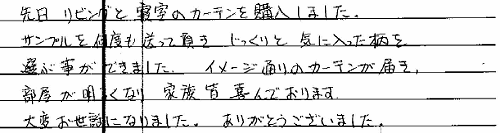 先日 リビングと寝室のカーテンを購入しました。
サンプルを何度も送って頂き じっくりと気に入った柄を
選ぶ事ができました。 イメージ通りのカーテンが届き、
部屋が明るくなり 家族皆喜んでおります。
大変お世話になりました。 ありがとうございました。